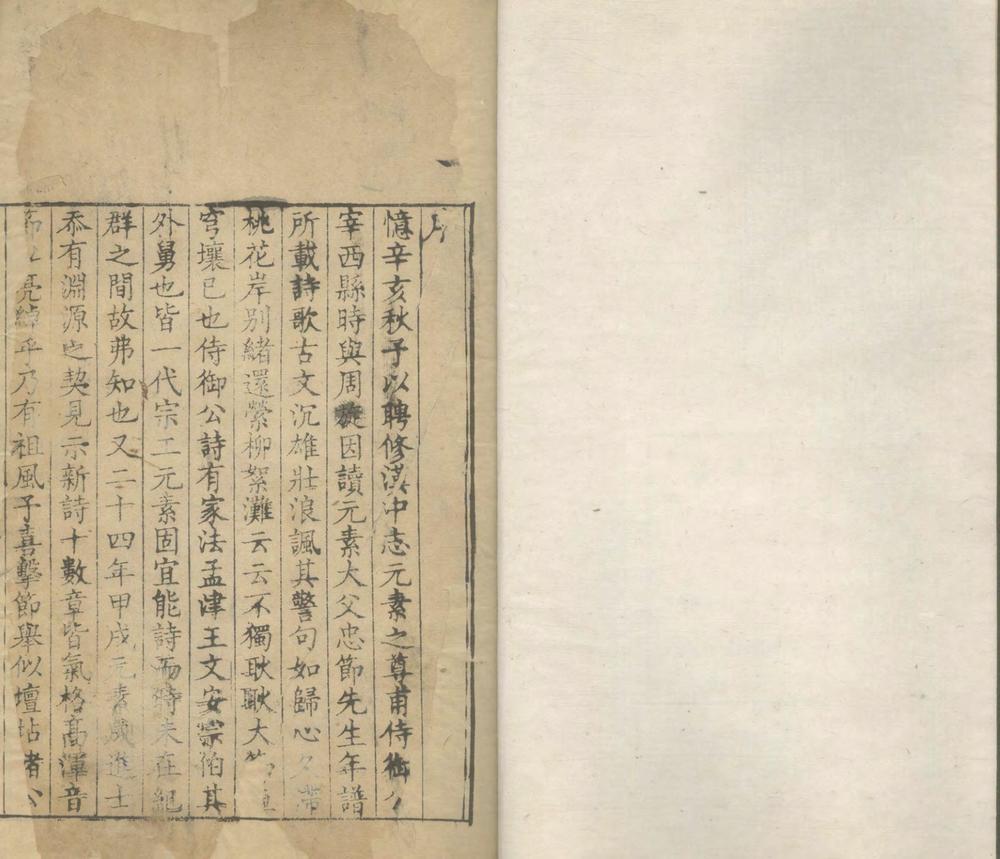 序
憶辛亥秋予以聘修漢中志元素之尊甫侍御公
宰西縣時與周旋因讀元素大父忠節先生年譜
所載詩歌古文沉雄壯浪諷其警句如歸心久滯
桃花岸別緒還縈柳絮灘云云不獨耿耿大節
穹壤已也侍御公詩有家法孟津王文安宗伯其
外舅也皆一代宗工元素固宜能詩而時未在紀
群之間故弗知也又二十四年甲戌元素成進士
忝有淵源之契見示新詩十數章皆氣格高渾音
節亮綽乎乃有祖風予喜擊節舉似壇坫者公